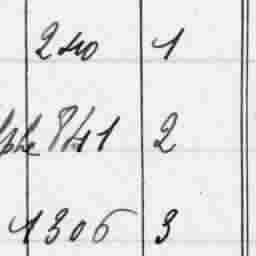 240 1
841 2
1306 3